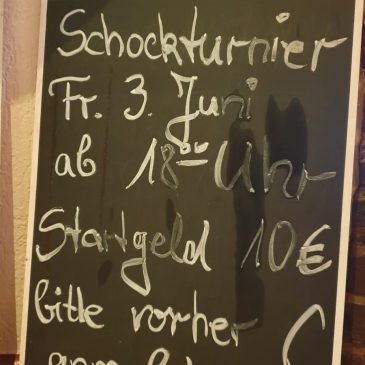 Schockturnier
Fr. 3. Juni
ab 18⁰⁰ Uhr
Startgeld 10€
bitte vorher